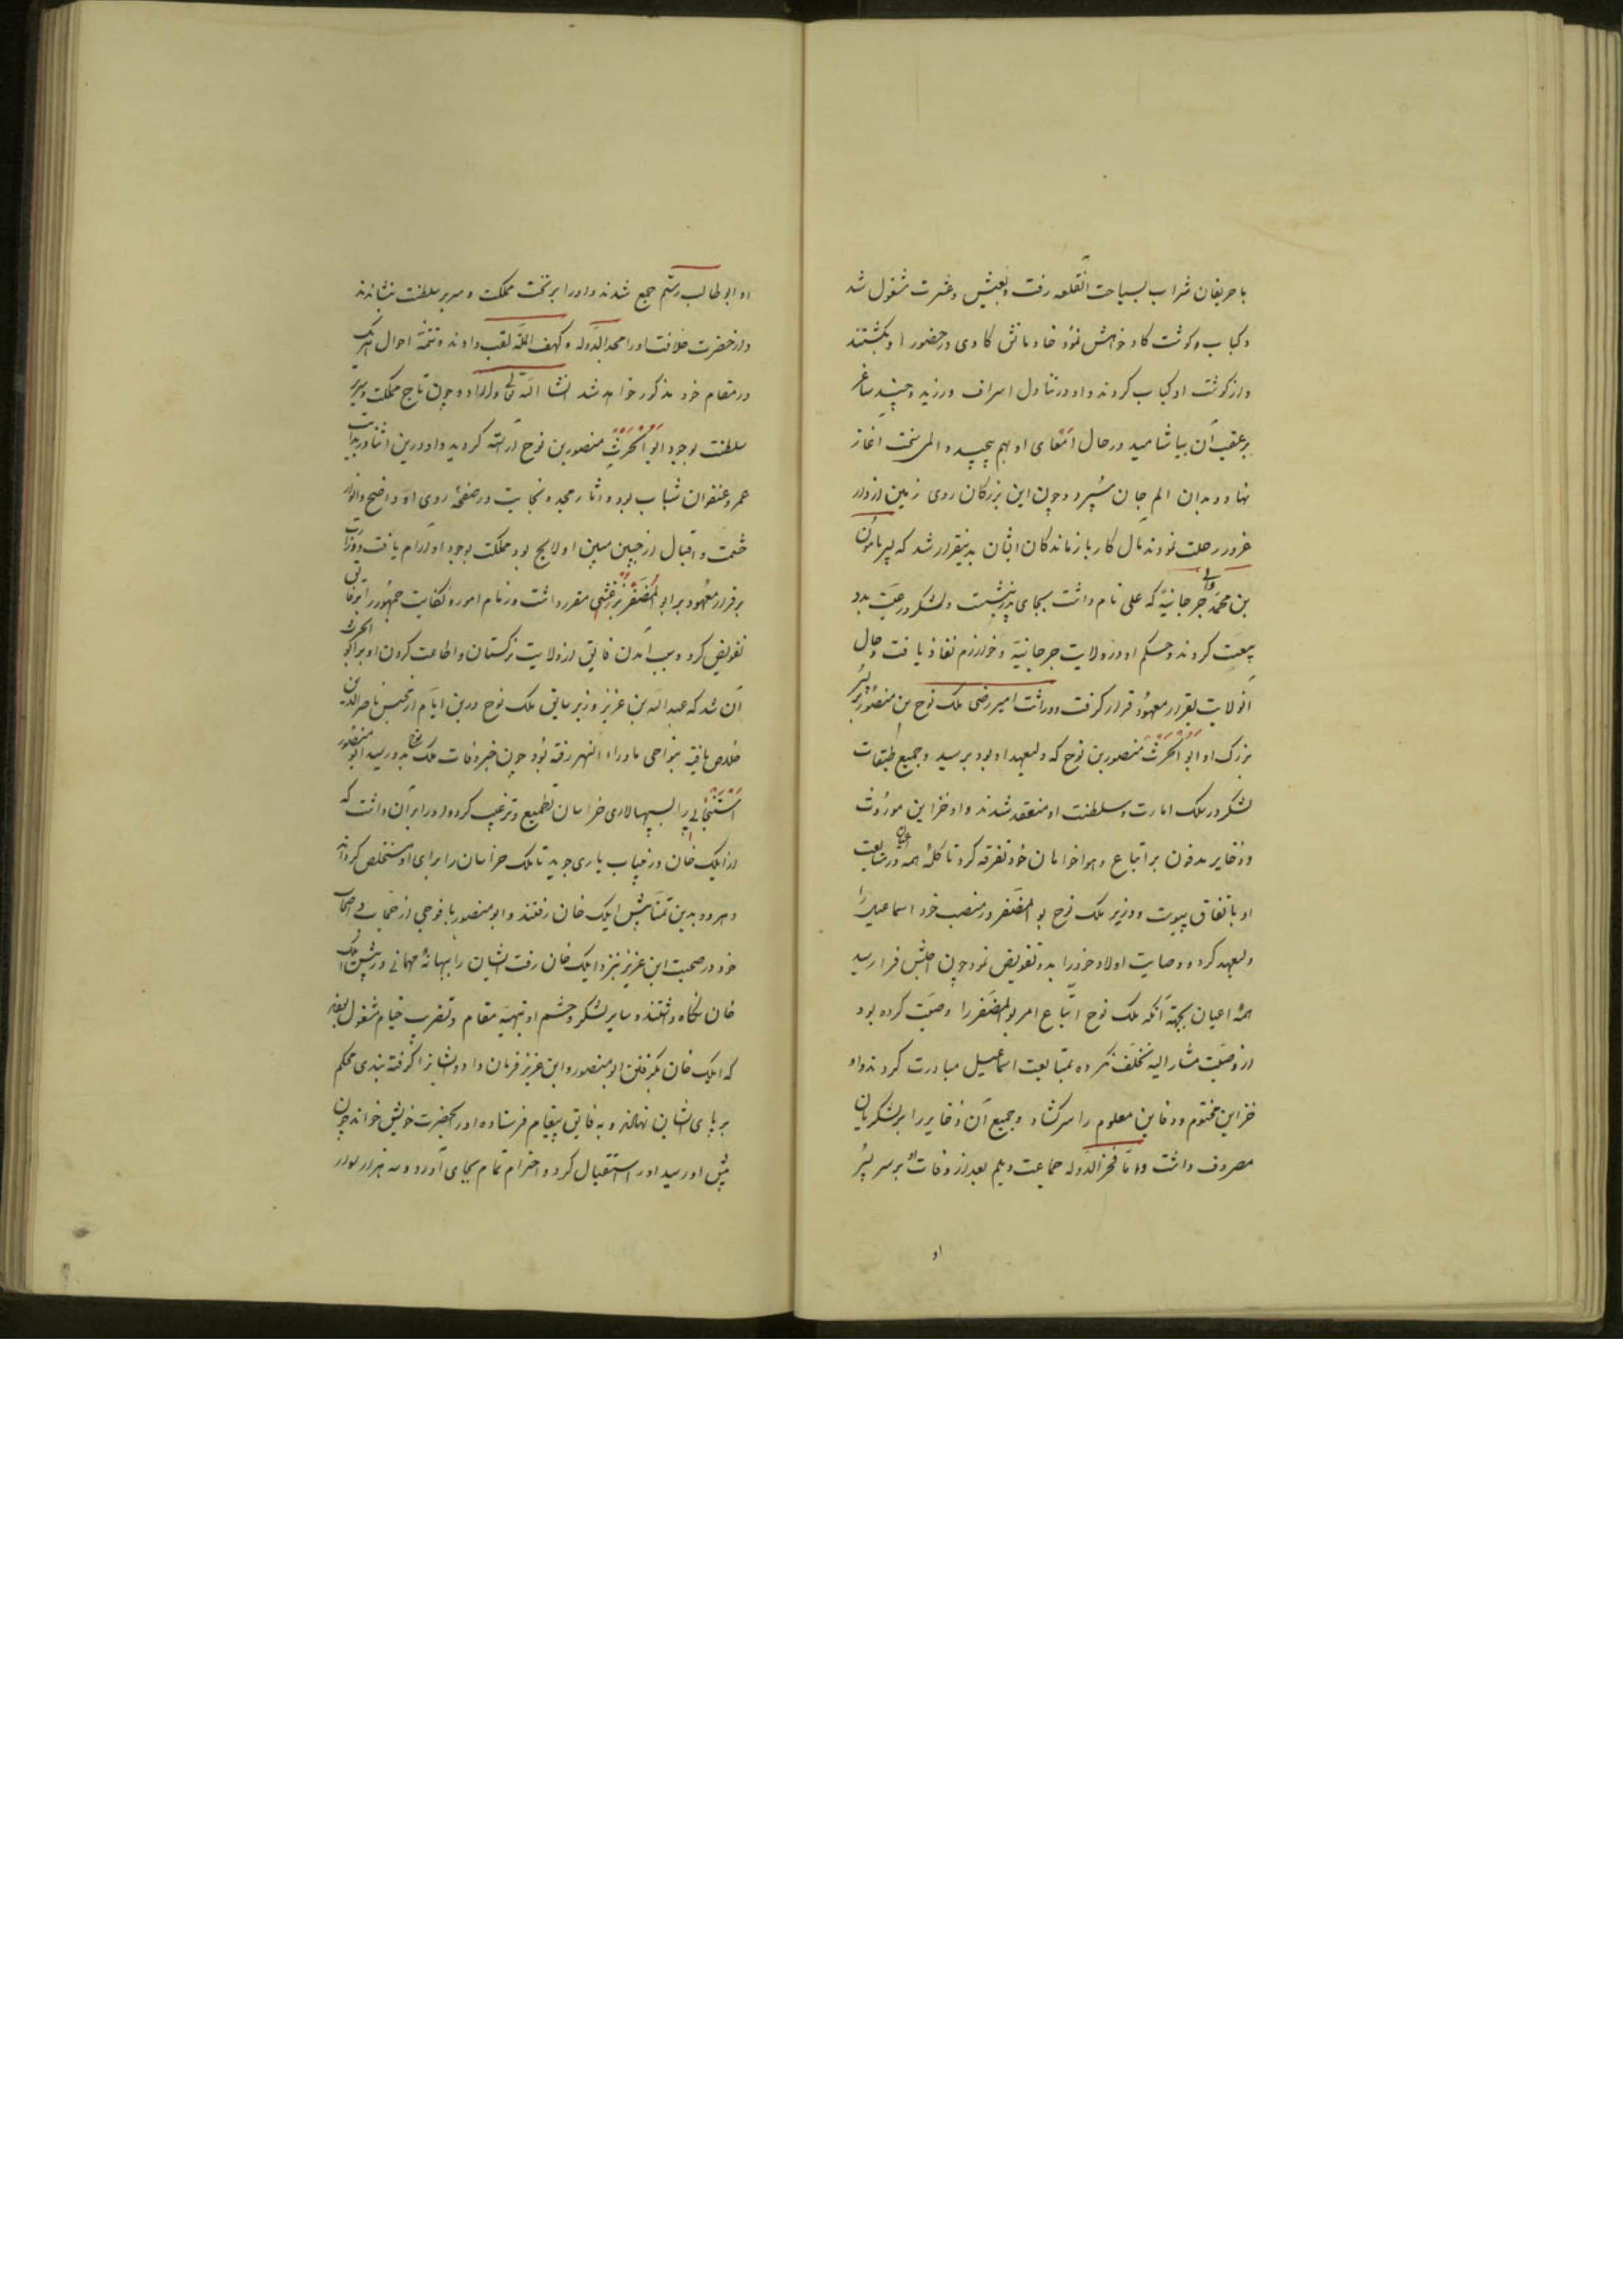 با حریفان شراب بسیاحت آنقلعه رفت و بعیش و عشرت مشغول شد
و کباب گوشت گاو خواهش نمود خادمانش گاوی در حضور او بکشتند
و از گوشت او کباب کردند و او در تناول اسراف ورزید و چند ساغر
بر عقب آن بیاشامید در حال امعای او بهم پیچید و المی سخت آغاز
نهاد و بدان الم جان سپرد و چون این بزرگان روی زمین از دار
غرور رحلت نمودند مآل کار بازماندگان ایشان بدینقرار شد که پسر مامون
بن محمد والی جرجانیه که علی نام داشت بجای پدر بنشست و لشکر و رعیت بدو
بیعت کردند و حکم او در ولایت جرجانیه و خوارزم نفاذ یافت و حال
آنولایت بقرار معهود قرار گرفت و وراثت امیر رضی ملک نوح بن منصور بر پسر
بزرگ او ابو الحرث منصور بن نوح که ولیعهد او بود برسید و جمیع طبقات
لشکر در ملک امارت و سلطنت او منعقد شدند و او خزاین موروث
و ذخایر مدفون بر اتباع و هواخواهان خود تفرقه کرد تا کلمهٔ همه در متابعت
او باتفاق پیوست و وزیر ملک نوح بو المضفر در منصب خود اسماعیل را
ولیعهد کرد و وصایت اولاد خود را بدو تفویض نمود چون اجلش فرا رسید
همهٔ اعیان بجهة آنکه ملک نوح اتباع امر بو المضفر را وصیت کرده بود
از وصیت مشار الیه تخلف نکرده بمتابعت اسماعیل مبادرت کردند و او
خزاین مختوم و دفاین معلوم را سرگشاد و جمیع آن ذخایر را بر لشکریان
مصروف داشت و اما فخر الدوله جماعت دیلم بعد از وفات او بر سر پسر
او
او ابو طالب رستم جمع شدند و او را بر تخت مملکت و سریر سلطنت بنشاندند
و از حضرت خلافت او را مجد الدوله و کهف الملة لقب دادند و تتمهٔ احوال هر یک
در مقام خود مذکور خواهد شد انشا الله تعالی و چون تاج مملکت و سریر
سلطنت بوجود ابو الحرث منصور بن نوح آراسته گردید و او درین اثنا در بدایت
عمر و عنفوان شباب بود و اثار مجد و نجابت در صفحهٔ روی او واضح و انوار
حشمت و اقبال از جبین مبین او لایح بود مملکت بوجود او آرام یافت و وزارت
بر قرار معهود بر ابو المضفر برغشی مقرر داشت و زمام امور و کفایت جمهور را بر فایق
تفویض کرد و سبب آمدن فایق از ولایت ترکستان و اطاعت کردن او بر ابو الحرث
آن شد که عبد الله بن عزیز وزیر سابق ملک نوح درین ایام از محبس ناصر الدین
خلاص یافته بنواحی ماوراء النهر رفته بود چون خبر وفات ملک نوح بدو رسید ابو منصور
اسبیجابی را بسپهسالاری خراسان تطمیع و ترغیب کرد و او را بر آن داشت که
از ایلک خان در غیاب یاری جوید تا ملک خراسان را برای او مستخلص گرداند
و هر دو بدین تمنا پیش ایلک خان رفتند و ابو منصور با فوجی از اصحاب
خود در صحبت ابن عزیز نزد ایلک خان رفت ایشان را ببهانهٔ مهمانی در پیش ایلک
خان نگاه داشتند و سایر لشکر و حشم او بتهیهٔ مقام و بضرب خیام مشغول بودند
که ایلک خان بگرفتن ابو منصور و ابن عزیز فرمان داد و ایشانرا گرفته بندی محکم
بر پای ایشان نهادند و به فایق پیغام فرستاده او را بحضرت خویش خواند چون
پیش او رسید او را استقبال کرد و احترام تمام بجای آورد و سه هزار سوار